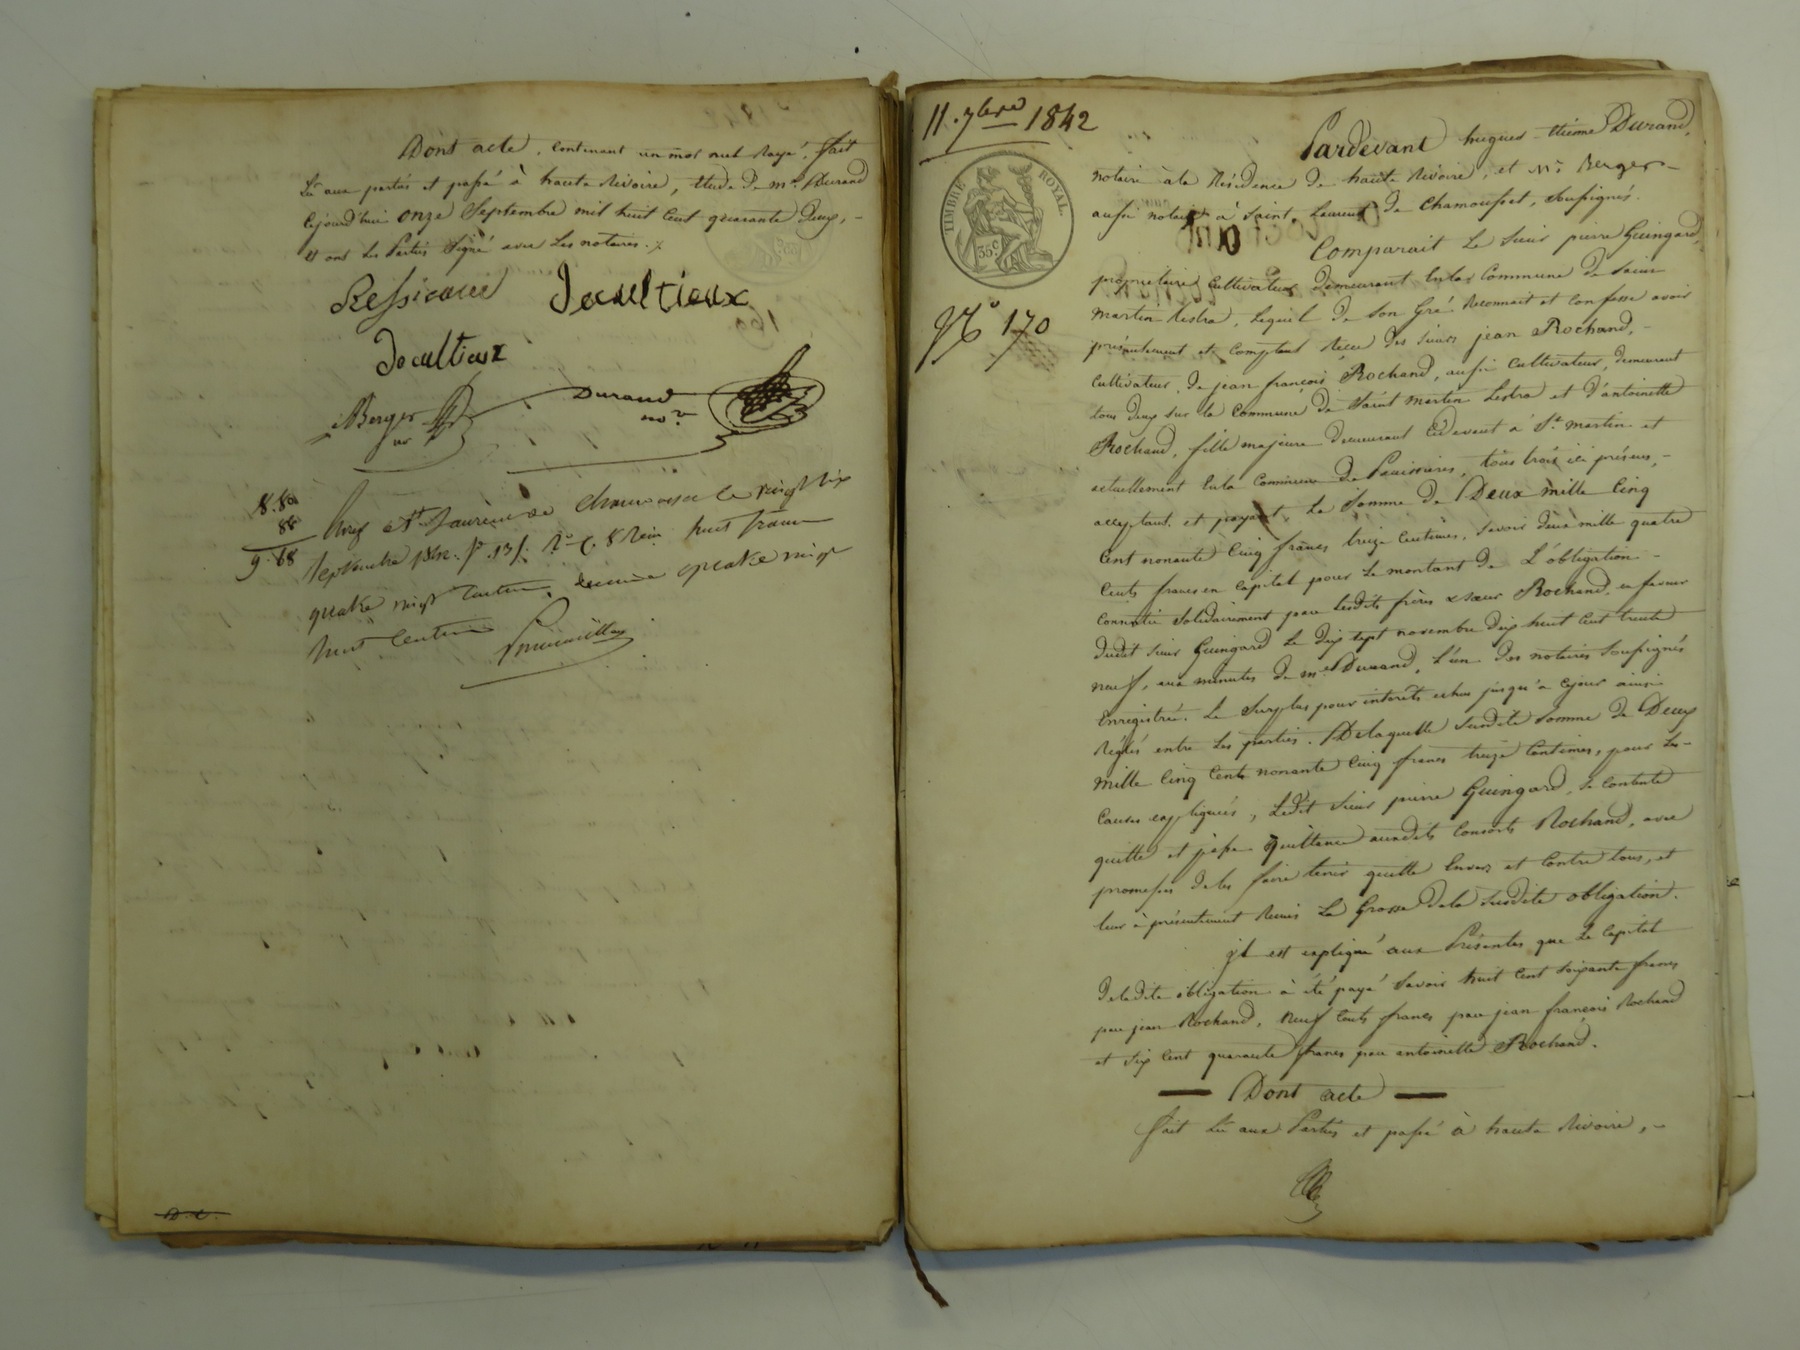 Dont acte, contenant un mot nul rayé, fait
Lu aux parties et passé à haute Rivoire, Etude de me Durand
Cejourd'hui onze Septembre mil huit cent quarante deux, -
et ont les Parties Signé avec Les notaires.
Jocultieux
Jocultieux
Berger
nre
Durand
nore
8.80
88
9.68
Septembre
huit francs
quatre vingt centimes, décime quatre vingt
huit centimes
D. C.
11. 7bre 1842
TIMBRE ROYAL.
35c.
No 170
Pardevant hugues-étienne Durand,
notaire à la Résidence de haute Rivoire, et Me Berger -
aussi notaire à Saint Laurent de Chamousset, soussignés.
Comparait Le Sieur pierre Guingard,
propriétaire cultivateur demeurant en la Commune de Saint
Martin Lestra, Lequel de Son Gré Reconnait et confesse avoir
présentement et comptant Recu des Sieurs jean Rochand, -
cultivateur, de jean françois Rochand, aussi cultivateur, demeurant
tous deux sur la Commune de Saint martin Lestra et d'antoinette
Rochand, fille majeure demeurant cidevant à St martin et
actuellement en la Commune de Panissières, tous trois ici présens, -
acceptant et payant, La Somme de Deux mille Cinq
Cent nonante Cinq francs treize Centimes, Savoir deux mille quatre
Cents francs en Capital pour Le montant de L'obligation -
Consentie Solidairement par Lesdits frères & sœur Rochand, en faveur
dudit Sieur Guingard Le dix sept novembre dix huit Cent trente
neuf, aux minutes de me Durand, L'un des notaires Soussignés
Enregistrée. Le Surplus pour intérêts échus jusqu'à cejour ainsi
Réglés entre Les parties. De laquelle Susdite Somme de Deux
Mille Cinq Cents nonante Cinq francs treize Centimes, pour Les -
Causes expliquées, Ledit Sieur pierre Guingard, Se contente
quitte et passe quittance auxdits Consorts Rochand, avec
promesse de les faire tenir quitte Envers et Contre tous, et
leur à présentement Remis La Grosse de la Susdite obligation.
jl est expliqué aux Présentes que Le Capital
de ladite obligation à été payé Savoir huit Cent Soixante francs
par jean Rochand, neuf Cents francs par jean françois Rochand
et Six Cent quarante francs par antoinette Rochand.
— Dont acte —
fait Lu aux Parties et passé à haute Rivoire, -